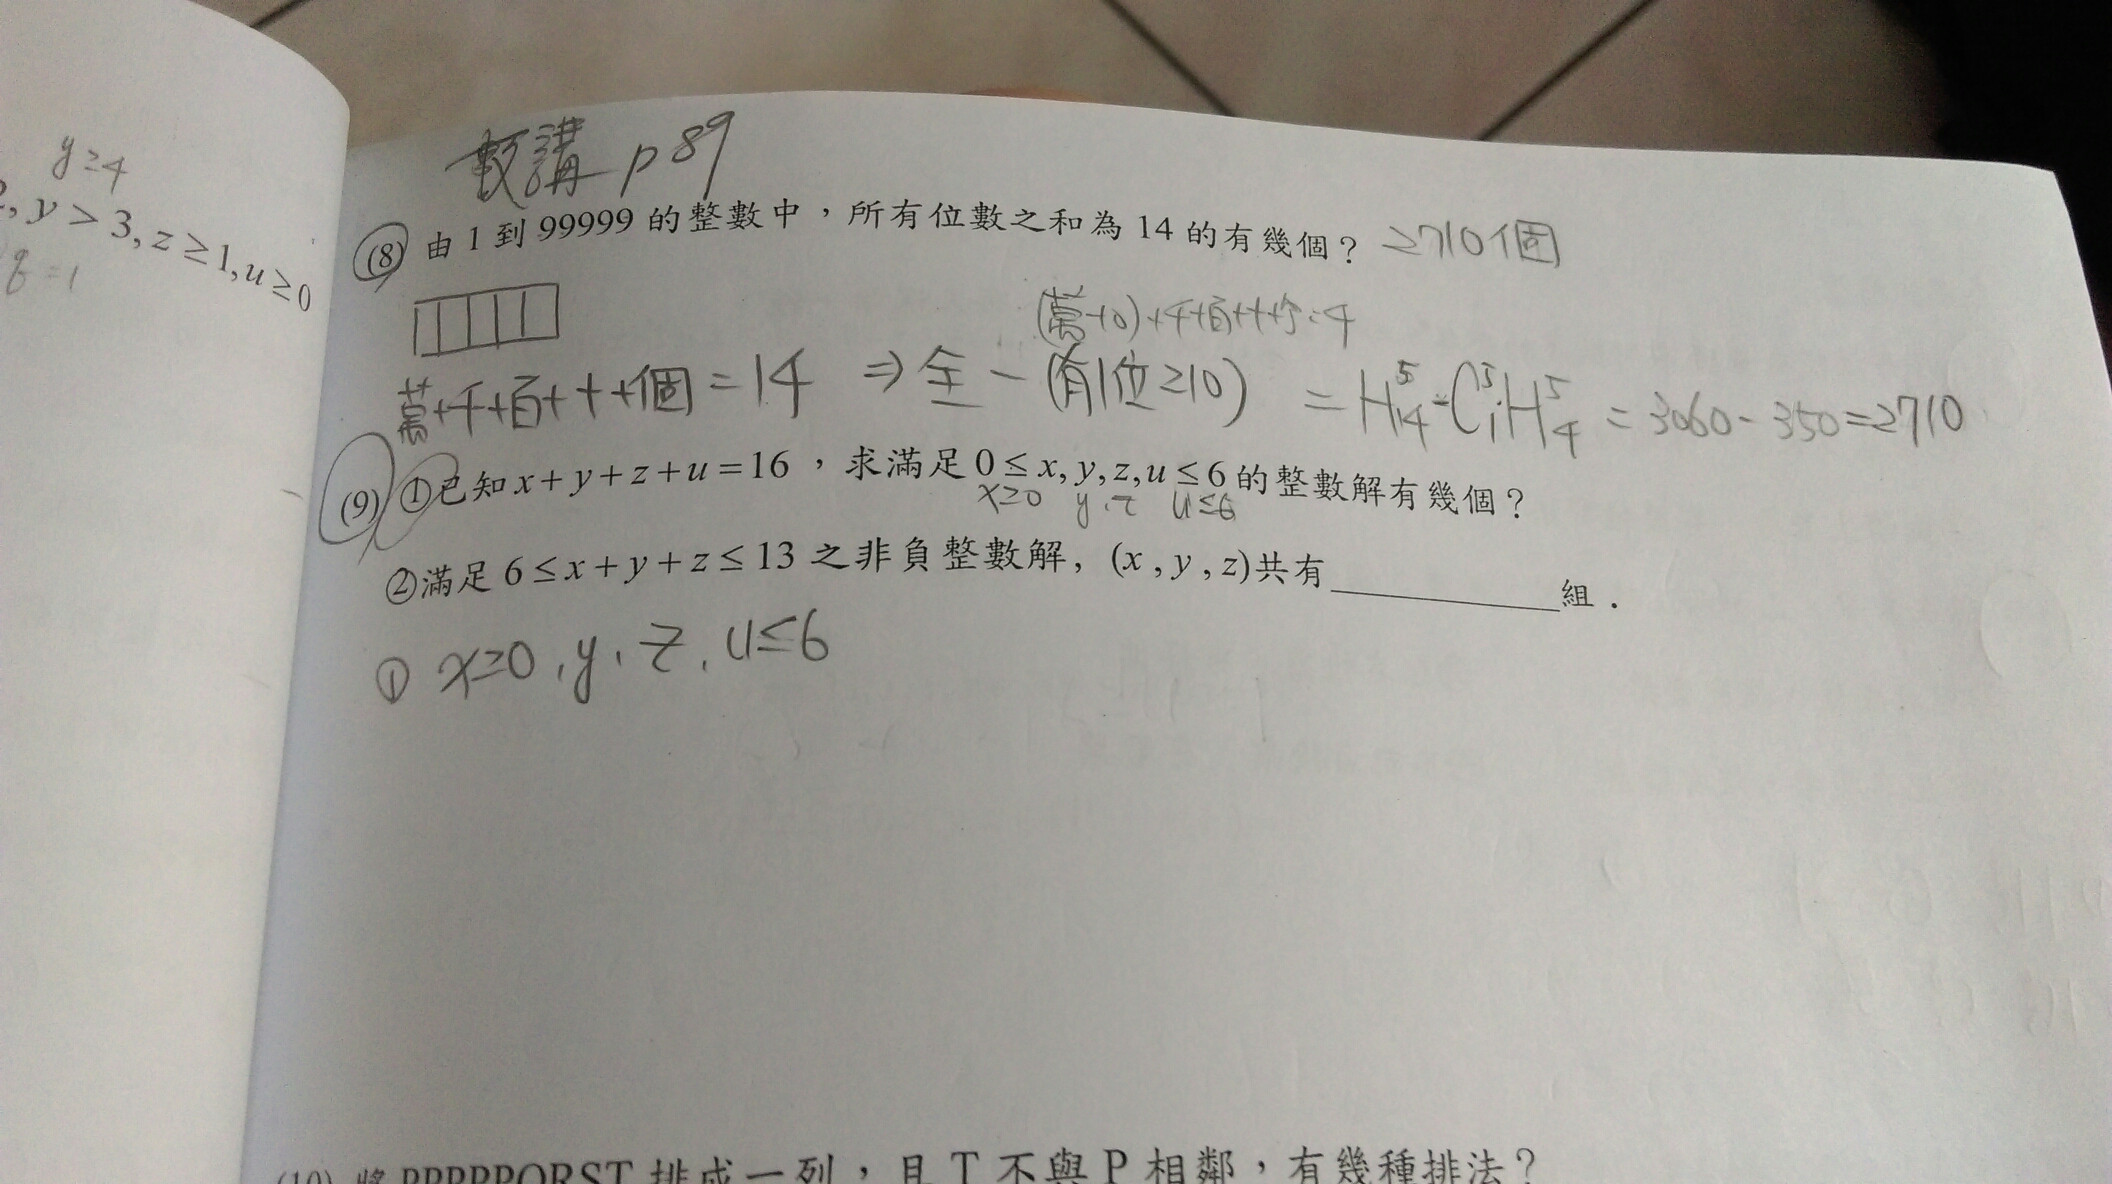 y≥4
, y > 3, z ≥ 1, u ≥ 0
= 1
數講 p89
(8) 由 1 到 99999 的整數中，所有位數之和為 14 的有幾個？ 2710個
(萬-10)+千+百+十+個=4
萬+千+百+十+個 = 14 ⇒ 全 - (有1位≥10) = H⁵₁₄ - C⁵₁H⁵₄ = 3060 - 350 = 2710
(9) ①已知 x + y + z + u = 16，求滿足 0 ≤ x, y, z, u ≤ 6 的整數解有幾個？
x≥0 y、z u≤6
②滿足 6 ≤ x + y + z ≤ 13 之非負整數解，(x , y , z)共有__________組．
① x≥0、y、z、u≤6
(10) 將 PPPPPQRST 排成一列，且 T 不與 P 相鄰，有幾種排法？